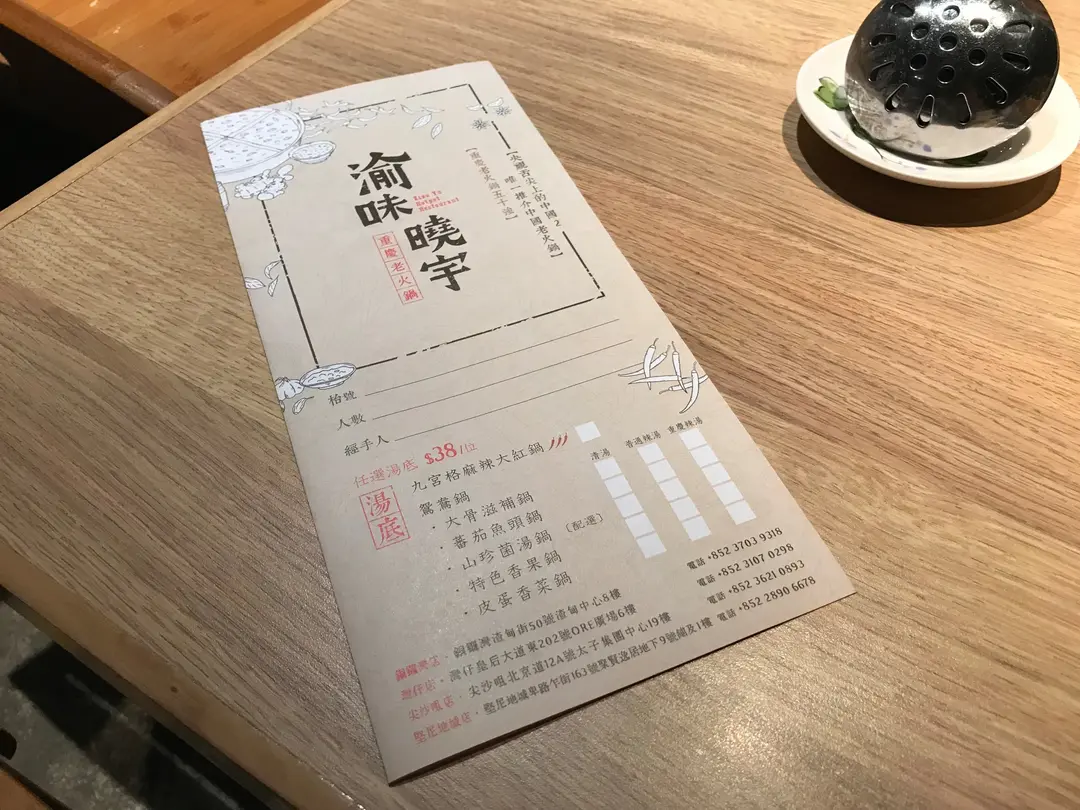 渝味曉宇
Xiao Yu
Hotpot
Restaurant
重慶老火鍋
【央視舌尖上的中國2
唯一推介中國老火鍋】
【重慶老火鍋五十強】
枱號
人數
經手人
任選湯底 $38/位
湯底
九宮格麻辣大紅鍋
鴛鴦鍋
清湯 普通辣湯 重慶辣湯
· 大骨滋補鍋
· 蕃茄魚頭鍋
· 山珍菌湯鍋 (配選)
· 特色香果鍋
· 皮蛋香菜鍋
銅鑼灣店 · 銅鑼灣渣甸街50號渣甸中心8樓 電話 +852 3703 9318
灣仔店 · 灣仔皇后大道東202號QRE廣場6樓 電話 +852 3107 0298
尖沙咀店 · 尖沙咀北京道12A號太子集團中心19樓 電話 +852 3621 0893
堅尼地城店 · 堅尼地城卑路乍街163號聚賢逸居地下9號舖及1樓 電話 +852 2890 6678